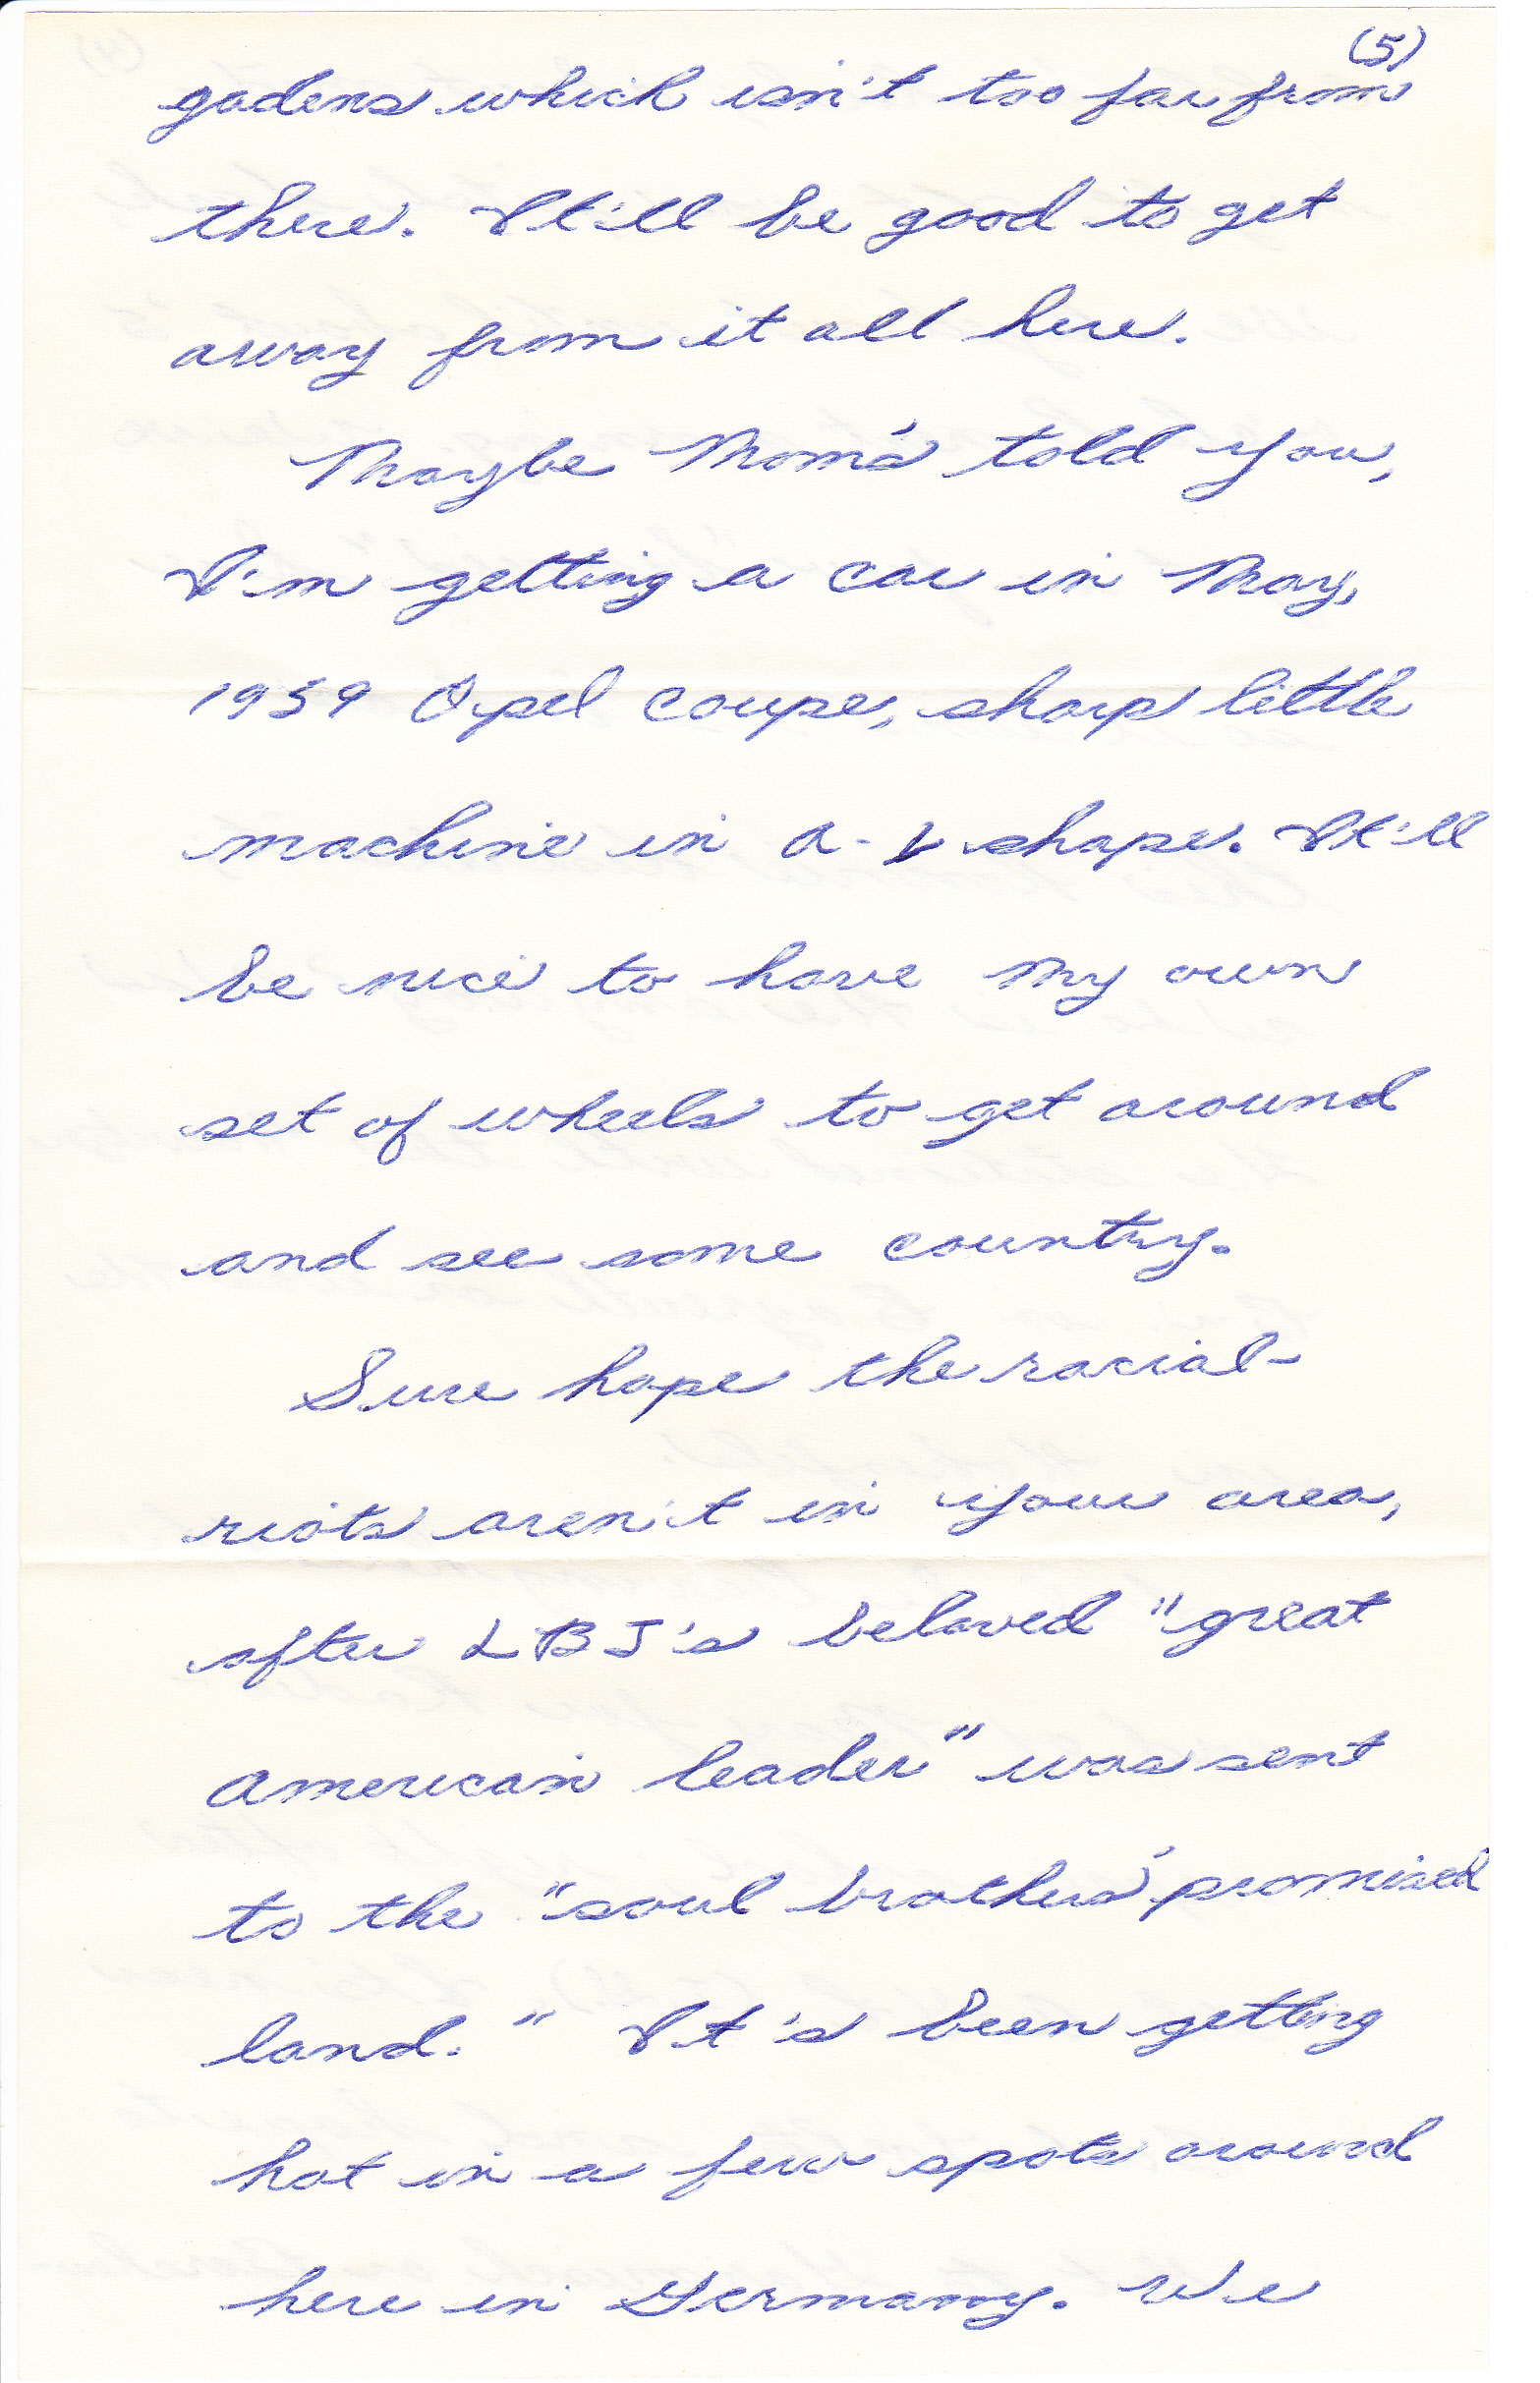 (5)
gadens which isn't too far from
there. It'll be good to get
away from it all here.
Maybe Mom's told you,
I'm getting a car in May,
1959 Opel coupe, sharp little
machine in A-1 shape. It'll
be nice to have my own
set of wheels to get around
and see some country.
Sure hope the racial-
riots aren't in your area,
after LBJ's beloved "great
American leader" was sent
to the "soul brothers' promised
land." It's been getting
hot in a few spots around
here in Germany. We